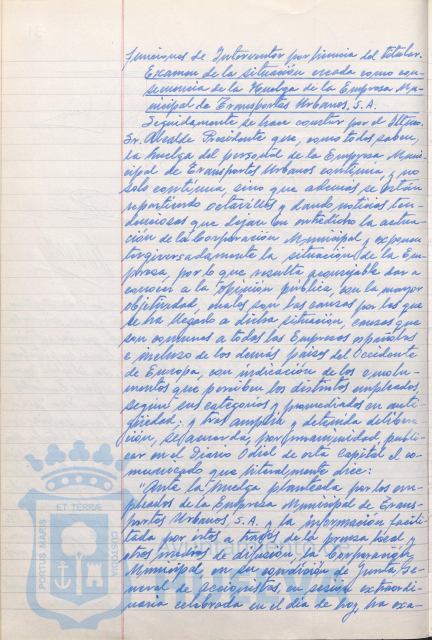 funciones de Interventor por licencia del titular.
Examen de la situación creada como con-
secuencia de la Huelga de la Empresa Mu-
nicipal de Transportes Urbanos, S.A.
Seguidamente se hace constar por el Iltmo.
Sr. Alcalde Presidente que, como todos saben,
la huelga del personal de la Empresa Muni-
cipal de Transportes Urbanos continúa, y no
solo continúa, sino que además se están
repartiendo octavillas y dando noticias ten-
denciosas que dejan en entredicho la actua-
ción de la Corporación Municipal y exponen
tergiversadamente la situación de la Em-
presa, por lo que resulta aconsejable dar a
conocer a la Opinión pública, con la mayor
objetividad, cuales son las causas por las que
se ha llegado a dicha situación, causas que
son comunes a todas las Empresas españolas
e incluso de los demás países del Occidente
de Europa, con indicación de los emolu-
mentos que perciben los distintos empleados
según sus categorías y promediados en anti-
güedad; y tras amplia y detenida delibera-
ción, se acuerda, por unanimidad, publi-
car en el Diario Odiel de esta capital el co-
municado que literalmente dice:
"Ante la huelga planteada por los em-
pleados de la Empresa Municipal de Trans-
portes Urbanos, S.A. y la información facili-
tada por estos a través de la prensa local y
otros medios de difusión, la Corporación
Municipal, en su condición de Junta Ge-
neral de Accionistas, en sesión extraordi-
naria celebrada en el día de hoy, ha exa-
PORTUS MARIS ET TERRAE CUSTODIA